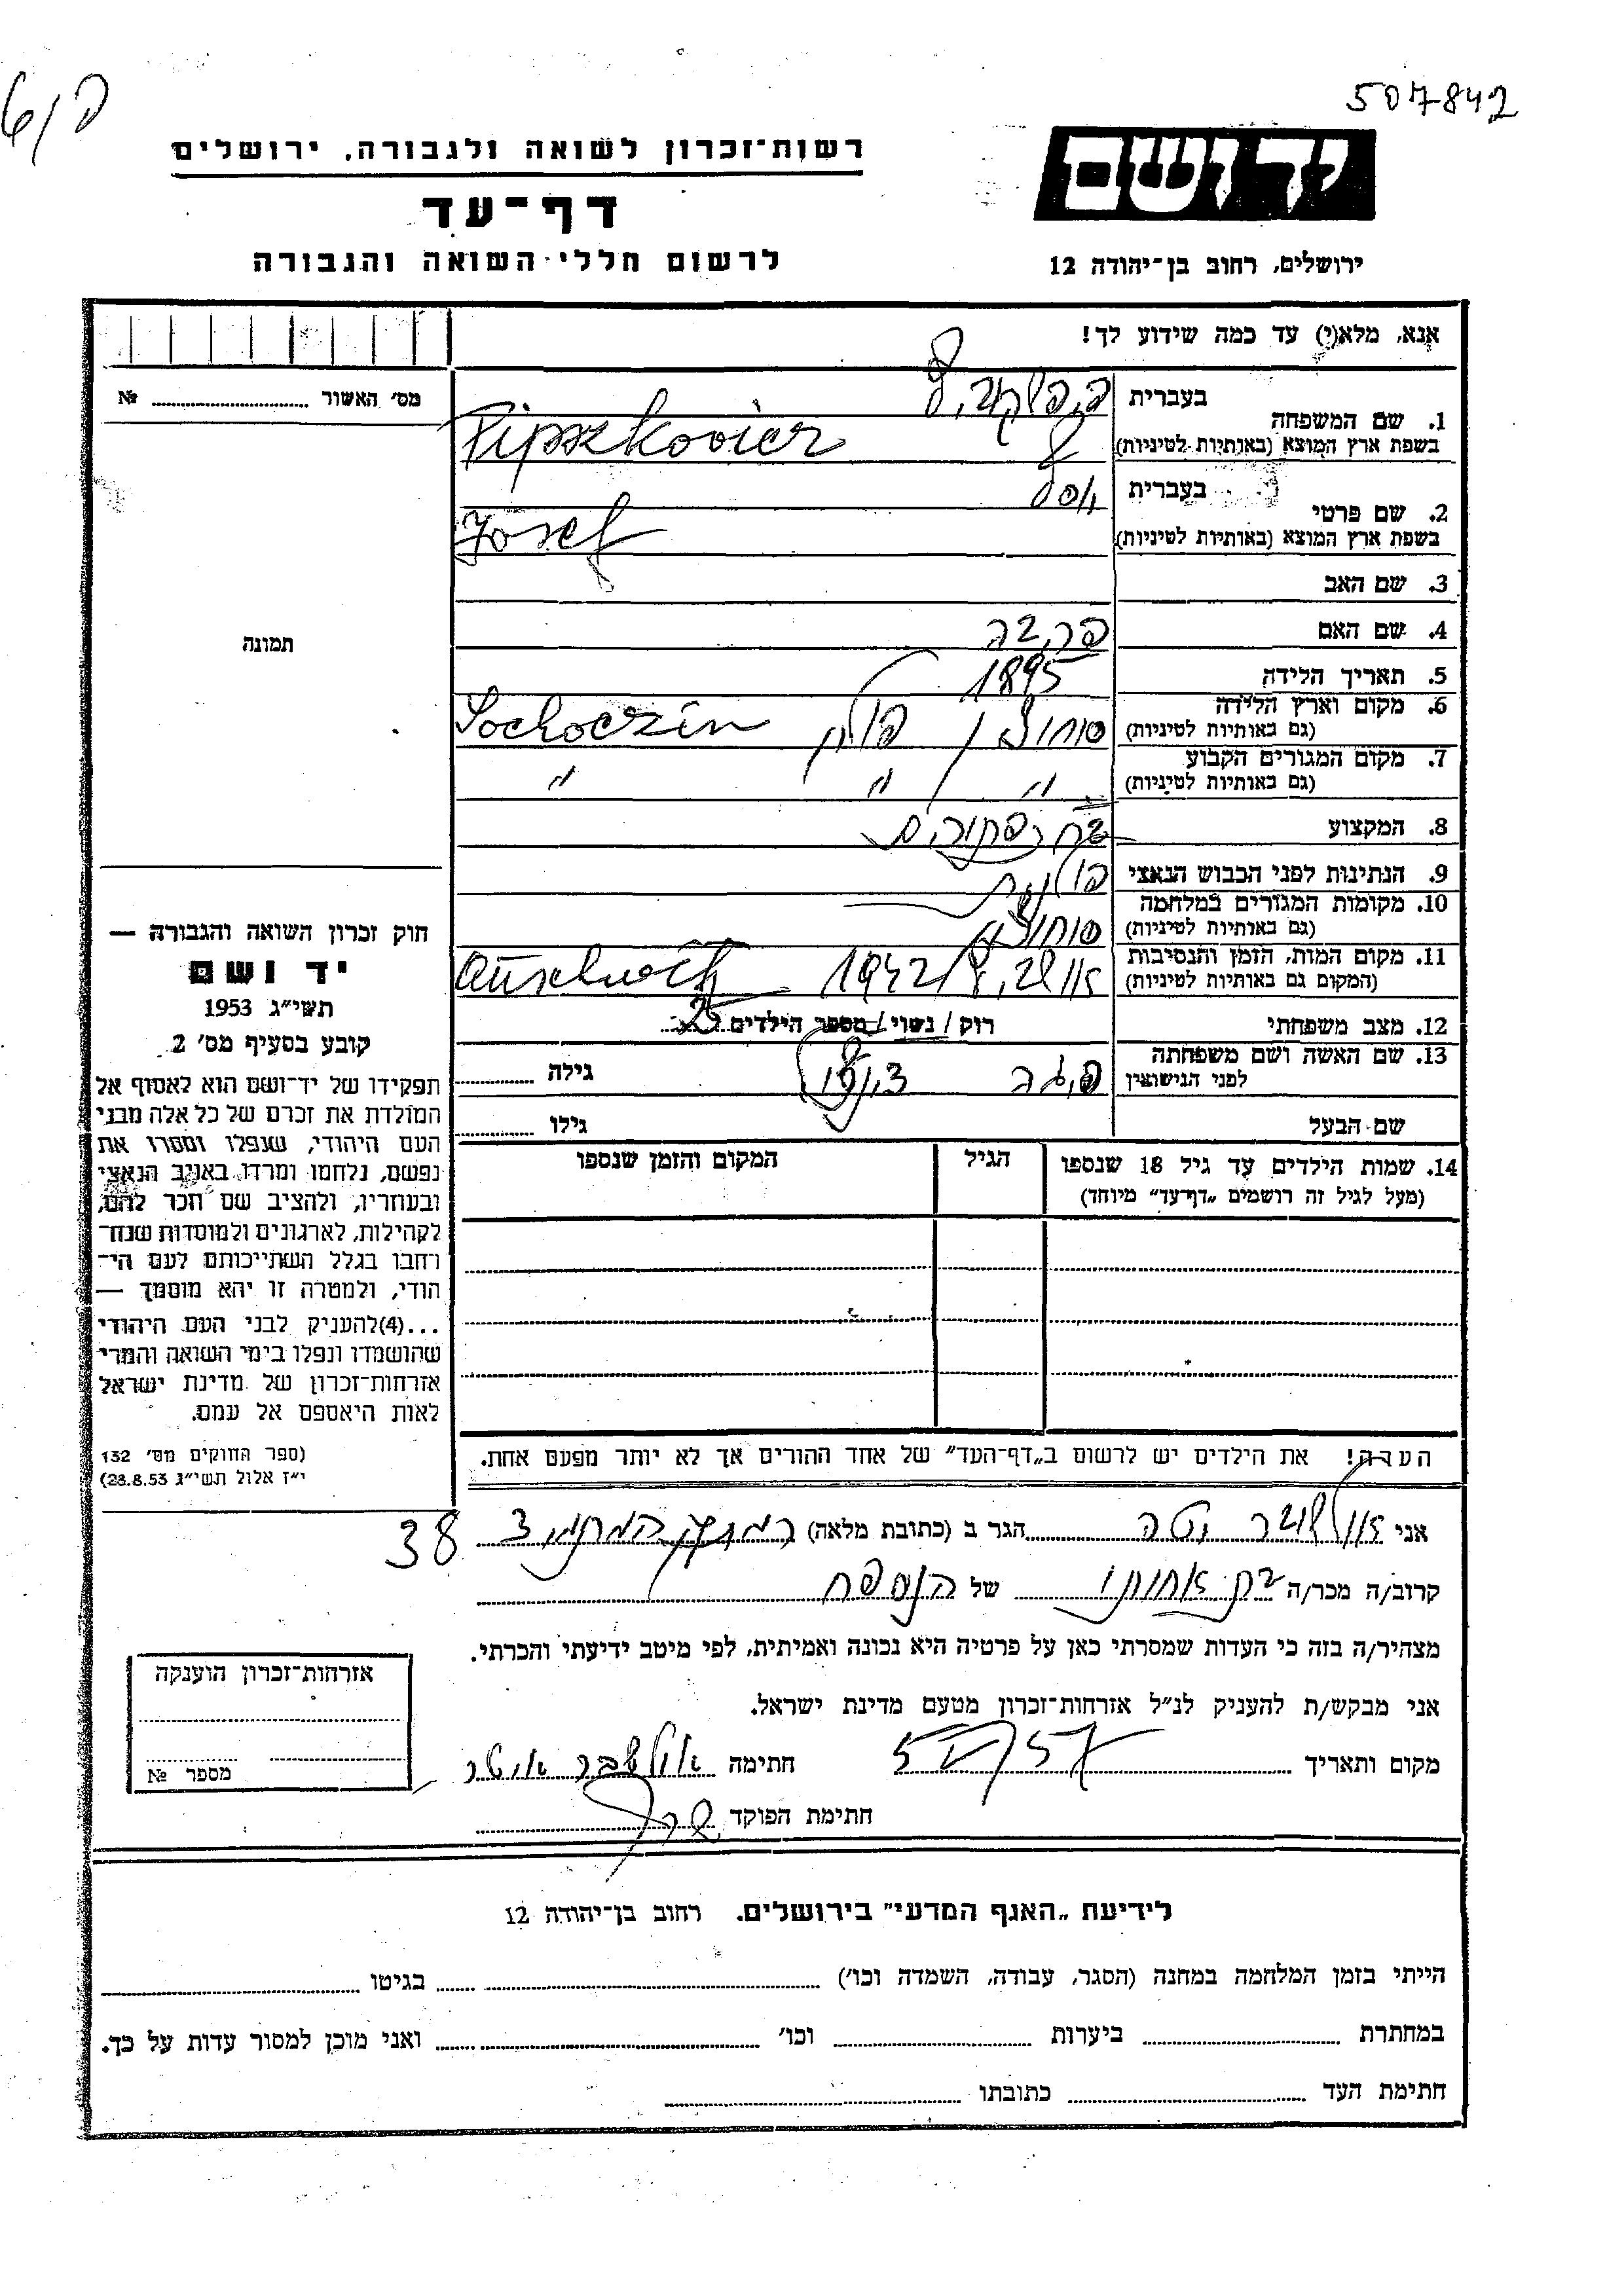 507842
יד ושם
ירושלים, רחוב בן־יהודה 12
רשות־זכרון לשואה ולגבורה, ירושלים
דף־עד
לרשום חללי השואה והגבורה
אנא, מלא(י) עד כמה שידוע לך!
מס׳ האשור № 
תמונה
1. שם המשפחה בעברית פיפשקוביץ
בשפת ארץ המוצא (באותיות לטיניות) Pipszkovicz
2. שם פרטי בעברית יוסף
בשפת ארץ המוצא (באותיות לטיניות) Josef
3. שם האב
4. שם האם
5. תאריך הלידה 1895
6. מקום וארץ הלידה סוחוצין / פולין Sochoczin
(גם באותיות לטיניות)
7. מקום המגורים הקבוע " / " "
(גם באותיות לטיניות)
8. המקצוע
9. הנתינות לפני הכבוש הנאצי פולנית
10. מקומות המגורים במלחמה סוחוצין
(גם באותיות לטיניות)
11. מקום המות, הזמן והנסיבות אושביץ / 1942
(המקום גם באותיות לטיניות)
12. מצב משפחתי רוק / נשוי / מספר הילדים 2
13. שם האשה ושם משפחתה
לפני הנישואין גילה
שם הבעל גילו
14. שמות הילדים עד גיל 18 שנספו הגיל המקום והזמן שנספו
(מעל לגיל זה רושמים „דף־עד״ מיוחד)
הערה! את הילדים יש לרשום ב„דף־העד״ של אחד ההורים אך לא יותר מפעם אחת.
חוק זכרון השואה והגבורה —
יד ושם
תשי״ג 1953
קובע בסעיף מס׳ 2
תפקידו של יד־ושם הוא לאסוף אל
המולדת את זכרם של כל אלה מבני
העם היהודי, שנפלו ומסרו את
נפשם, נלחמו ומרדו באויב הנאצי
ובעוזריו, ולהציב שם וזכר להם,
לקהילות, לארגונים ולמוסדות שנח־
רחבו בגלל השתייכותם לעם הי־
הודי, ולמטרה זו יהא מוסמך —
...(4)להעניק לבני העם היהודי
שהושמדו ונפלו בימי השואה והמרי
אזרחות־זכרון של מדינת ישראל
לאות היאספם אל עמם.
(ספר החוקים מס׳ 132
י״ז אלול תשי״ג 28.8.53)
אני הגר ב (כתובת מלאה) 38
קרוב/ה מכר/ה בת אחותו של הנספה
מצהיר/ה בזה כי העדות שמסרתי כאן על פרטיה היא נכונה ואמיתית, לפי מיטב ידיעתי והכרתי.
אני מבקש/ת להעניק לנ״ל אזרחות־זכרון מטעם מדינת ישראל.
מקום ותאריך חתימה
חתימת הפוקד
אזרחות־זכרון הוענקה
מספר №
לידיעת „האגף המדעי״ בירושלים. רחוב בן־יהודה 12
הייתי בזמן המלחמה במחנה (הסגר, עבודה, השמדה וכו׳) בגיטו
במחתרת ביערות וכו׳ ואני מוכן למסור עדות על כך.
חתימת העד כתובתו